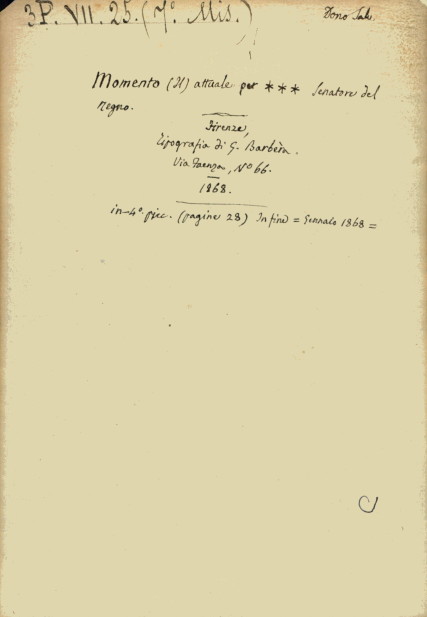 3P. VII. 25. (7º Mis.)
Dono
Momento (Il) attuale per *** Senatore del
regno.
Firenze,
Tipografia di G. Barbèra.
Via Faenza, Nº 66.
1868.
in-4º picc. (pagine 28) In fine = Gennaio 1868 =